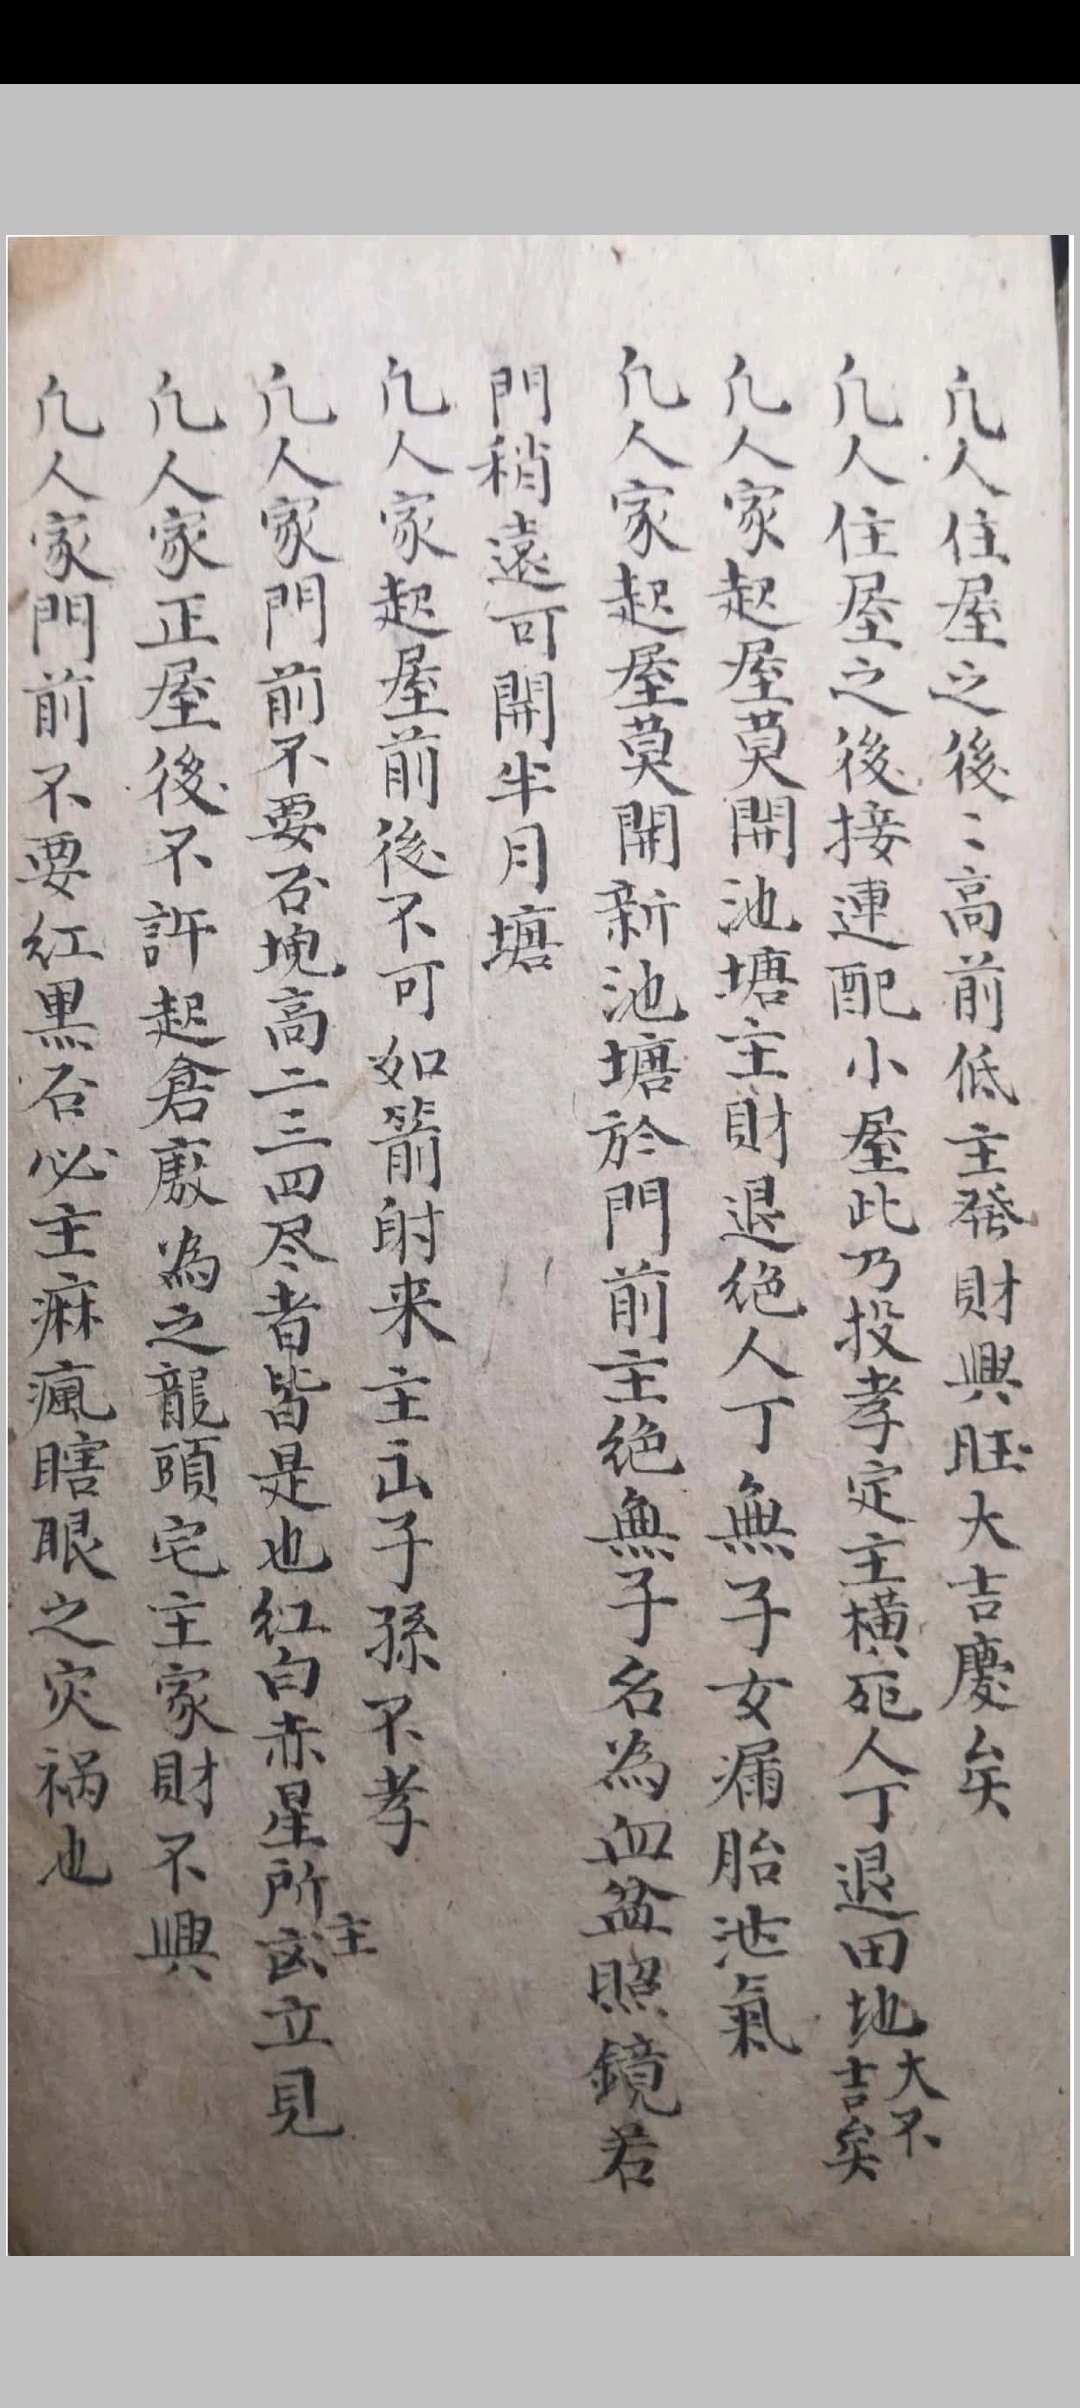 凡人住屋之後〻高前低主發財興旺大吉慶矣
凡人住屋之後接連配小屋此乃投孝定主橫死人丁退田地大不吉矣
凡人家起屋莫開池塘主財退絕人丁無子女漏胎池氣
凡人家起屋莫開新池塘於門前主絕無子名為血盆照鏡若
門稍遠可開半月塘
凡人家起屋前後不可如箭射来主出子孫不孝
凡人家門前不要石塊高二三四尽者皆是也紅白赤星所主凶立見
凡人家正屋後不許起倉廒為之龍頭宅主家財不興
凡人家門前不要紅黑石必主痳瘋瞎眼之灾禍也